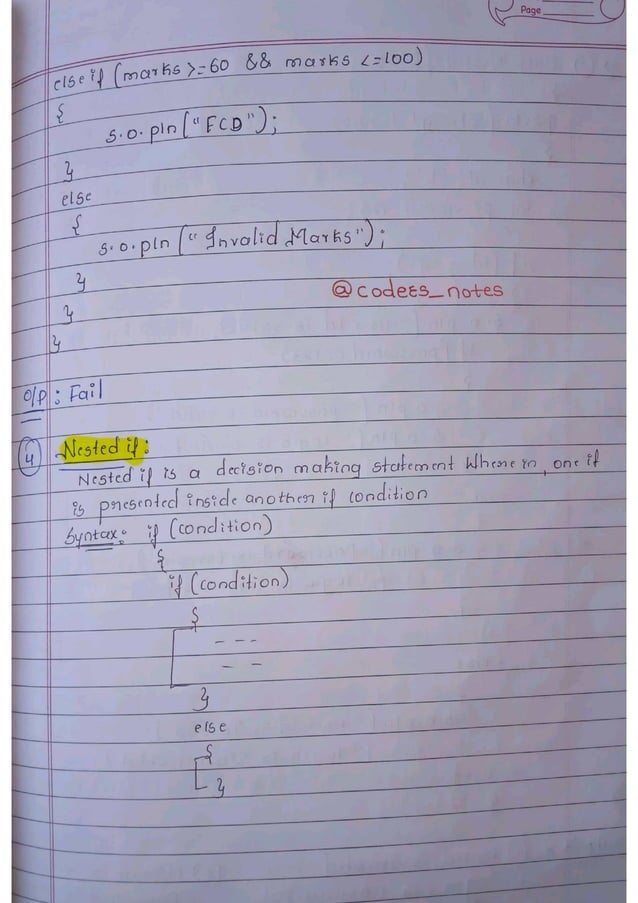 Page
else if (marks >=60 && marks <=100)
{
S.o.pln ("FCD");
}
else
{
S.o.pln ("Invalid Marks");
}
@codees_notes
}
}
O/P : Fail
4 Nested if :
Nested if is a decision making statement Where in, one if
is presented inside another if condition
Syntax: if (condition)
{
if (condition)
{
- - -
- -
}
else
{
}